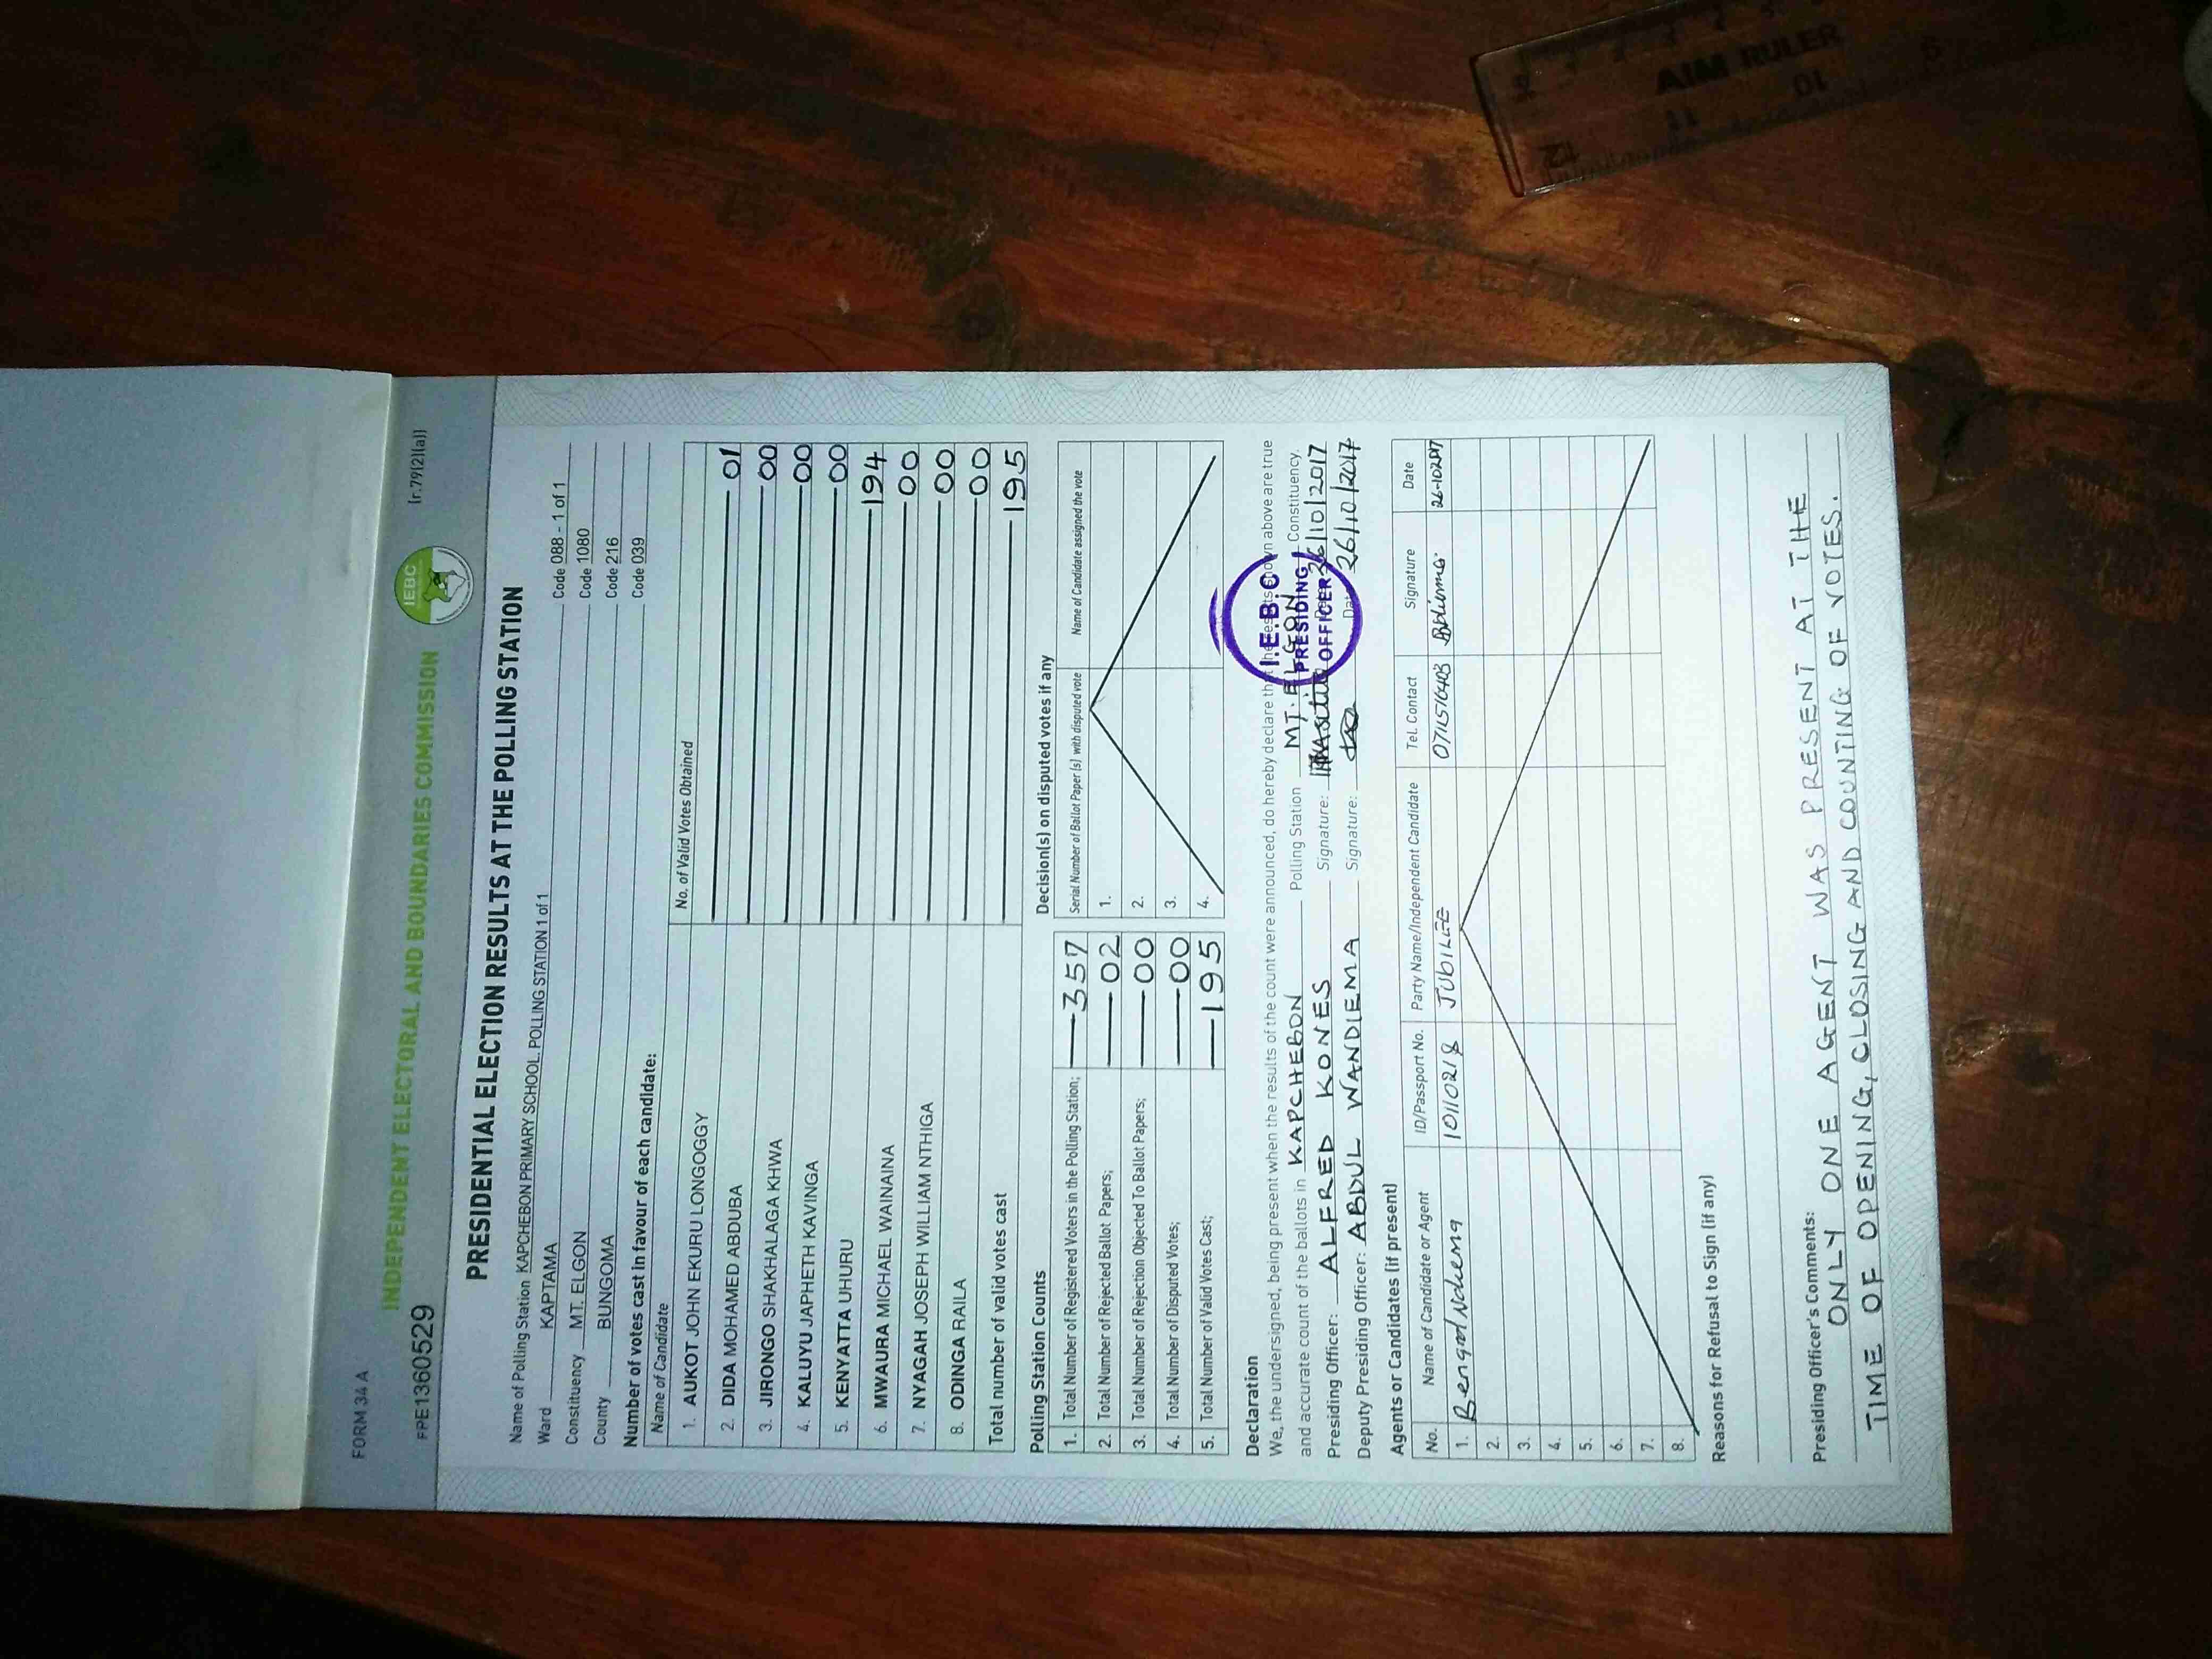 FORM 34 A
INDEPENDENT ELECTORAL AND BOUNDARIES COMMISSION
IEBC
(r.79(2)(a))
FPE1360529
PRESIDENTIAL ELECTION RESULTS AT THE POLLING STATION
Name of Polling Station KAPCHEBON PRIMARY SCHOOL. POLLING STATION 1 of 1 Code 088 - 1 of 1
Ward KAPTAMA Code 1080
Constituency MT. ELGON Code 216
County BUNGOMA Code 039
Number of votes cast in favour of each candidate:
Name of Candidate No. of Valid Votes Obtained
1. AUKOT JOHN EKURU LONGOGGY 01
2. DIDA MOHAMED ABDUBA 00
3. JIRONGO SHAKHALAGA KHWA 00
4. KALUYU JAPHETH KAVINGA 00
5. KENYATTA UHURU 194
6. MWAURA MICHAEL WAINAINA 00
7. NYAGAH JOSEPH WILLIAM NTHIGA 00
8. ODINGA RAILA 00
Total number of valid votes cast 195
Polling Station Counts
1. Total Number of Registered Voters in the Polling Station; 357
2. Total Number of Rejected Ballot Papers; 02
3. Total Number of Rejection Objected To Ballot Papers; 00
4. Total Number of Disputed Votes; 00
5. Total Number of Valid Votes Cast; 195
Decision(s) on disputed votes if any
Serial Number of Ballot Paper (s) with disputed vote Name of Candidate assigned the vote
1.
2.
3.
4.
Declaration
We, the undersigned, being present when the results of the count were announced, do hereby declare that the results shown above are true
and accurate count of the ballots in KAPCHEBON Polling Station MT. ELGON Constituency.
Presiding Officer: ALFRED KONES Signature: 26/10/2017
Deputy Presiding Officer: ABDUL WANDIEMA Signature: Date 26/10/2017
I.E.B.C
PRESIDING
OFFICER
Agents or Candidates (if present)
No. Name of Candidate or Agent ID/Passport No. Party Name/Independent Candidate Tel. Contact Signature Date
1. 10110218 JUBILEE 0715710403 26-10-2017
2.
3.
4.
5.
6.
7.
8.
Reasons for Refusal to Sign (if any)
Presiding Officer's Comments:
ONLY ONE AGENT WAS PRESENT AT THE
TIME OF OPENING, CLOSING AND COUNTING OF VOTES.
AIM RULER
12 11 10 9